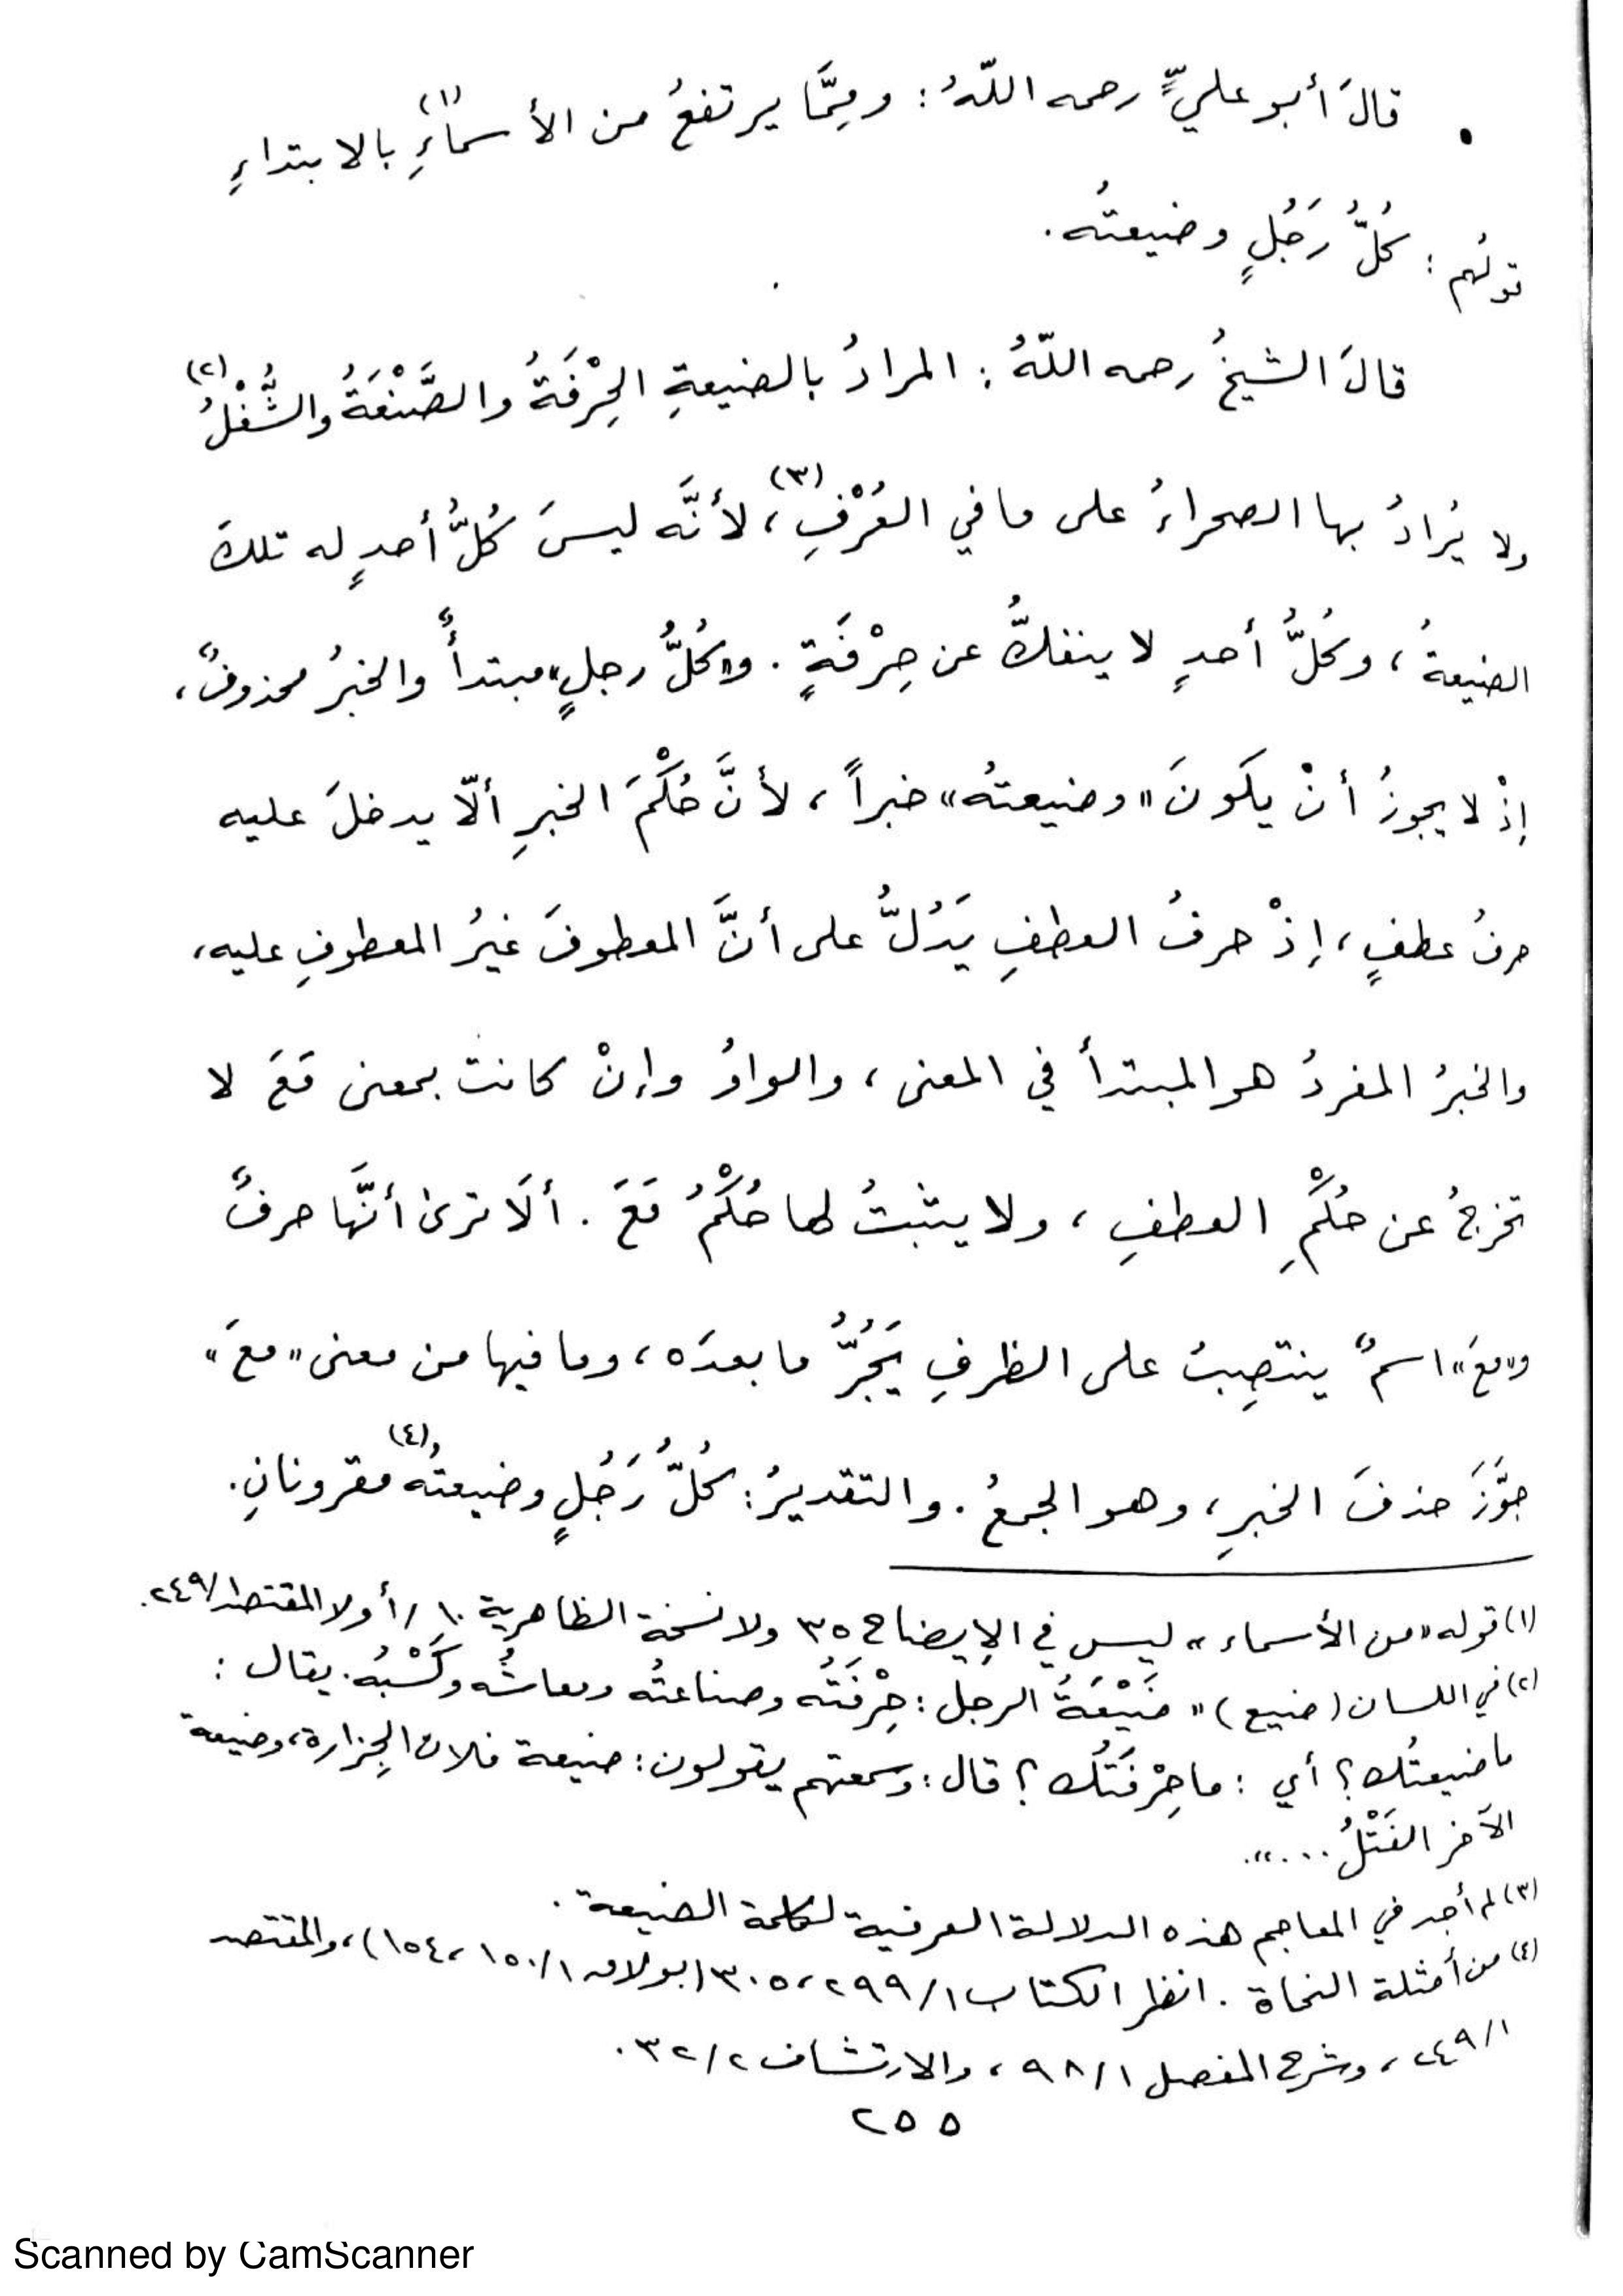 • قالَ أبو عليٍّ رحمه اللّهُ: وممَّا يرتفعُ من الأسماءِ(١) بالابتداءِ
قولُهم: كُلُّ رَجُلٍ وضيعتُه.
قالَ الشيخُ رحمه اللّهُ: المرادُ بالضيعةِ الحِرْفَةُ والصَّنْعَةُ والشُّغْلُ(٢)
ولا يُرادُ بها الصحراءُ على ما في العُرْفِ(٣)، لأنَّه ليسَ كُلُّ أحدٍ له تلكَ
الضيعةُ، وكُلُّ أحدٍ لا ينفكُّ عن حِرْفَةٍ. و«كُلُّ رجلٍ» مبتدأٌ والخبرُ محذوفٌ،
إذْ لا يجوزُ أنْ يكونَ «وضيعتُه» خبراً، لأنَّ حُكْمَ الخبرِ ألّا يدخلَ عليه
حرفُ عطفٍ، إذْ حرفُ العطفِ يَدُلُّ على أنَّ المعطوفَ غيرُ المعطوفِ عليه،
والخبرُ المفردُ هو المبتدأ في المعنى، والواوُ وإنْ كانت بمعنى مَعَ لا
تخرجُ عن حُكْمِ العطفِ، ولا يثبتُ لها حُكْمُ مَعَ. ألَا ترى أنَّها حرفٌ
و«مَعَ» اسمٌ ينتصِبُ على الظرفِ يَجُرُّ ما بعدَه، وما فيها من معنى «معَ»
جوَّزَ حذفَ الخبرِ، وهو الجمعُ. والتقديرُ: كُلُّ رَجُلٍ وضيعتُه(٤) مقرونانِ.
(١) قوله «من الأسماء» ليس في الإيضاح ٣٥ ولا نسخة الظاهرية ١٠/أ ولا المقتصد ١/٢٤٩.
(٢) في اللسان (ضيع) «ضَيْعَةُ الرجل: حِرْفَتُه وصناعتُه ومعاشُه وكَسْبُه. يقال:
ما ضيعتُك؟ أي: ما حِرْفَتُك؟ قال: وسمعتهم يقولون: ضيعة فلان الجِزارة، وضيعة
الآخر الفَتْلُ...».
(٣) لم أجد في المعاجم هذه الدلالة العرفية لكلمة الضيعة.
(٤) من أمثلة النحاة. انظر الكتاب ١/٢٩٩، ٣٠٥ (بولاق ١/١٥٠، ١٥٤)، والمقتصد
١/٢٤٩، وشرح المفصل ١/٩٨، والارتشاف ٢/٣٢.
٢٥٥
Scanned by CamScanner